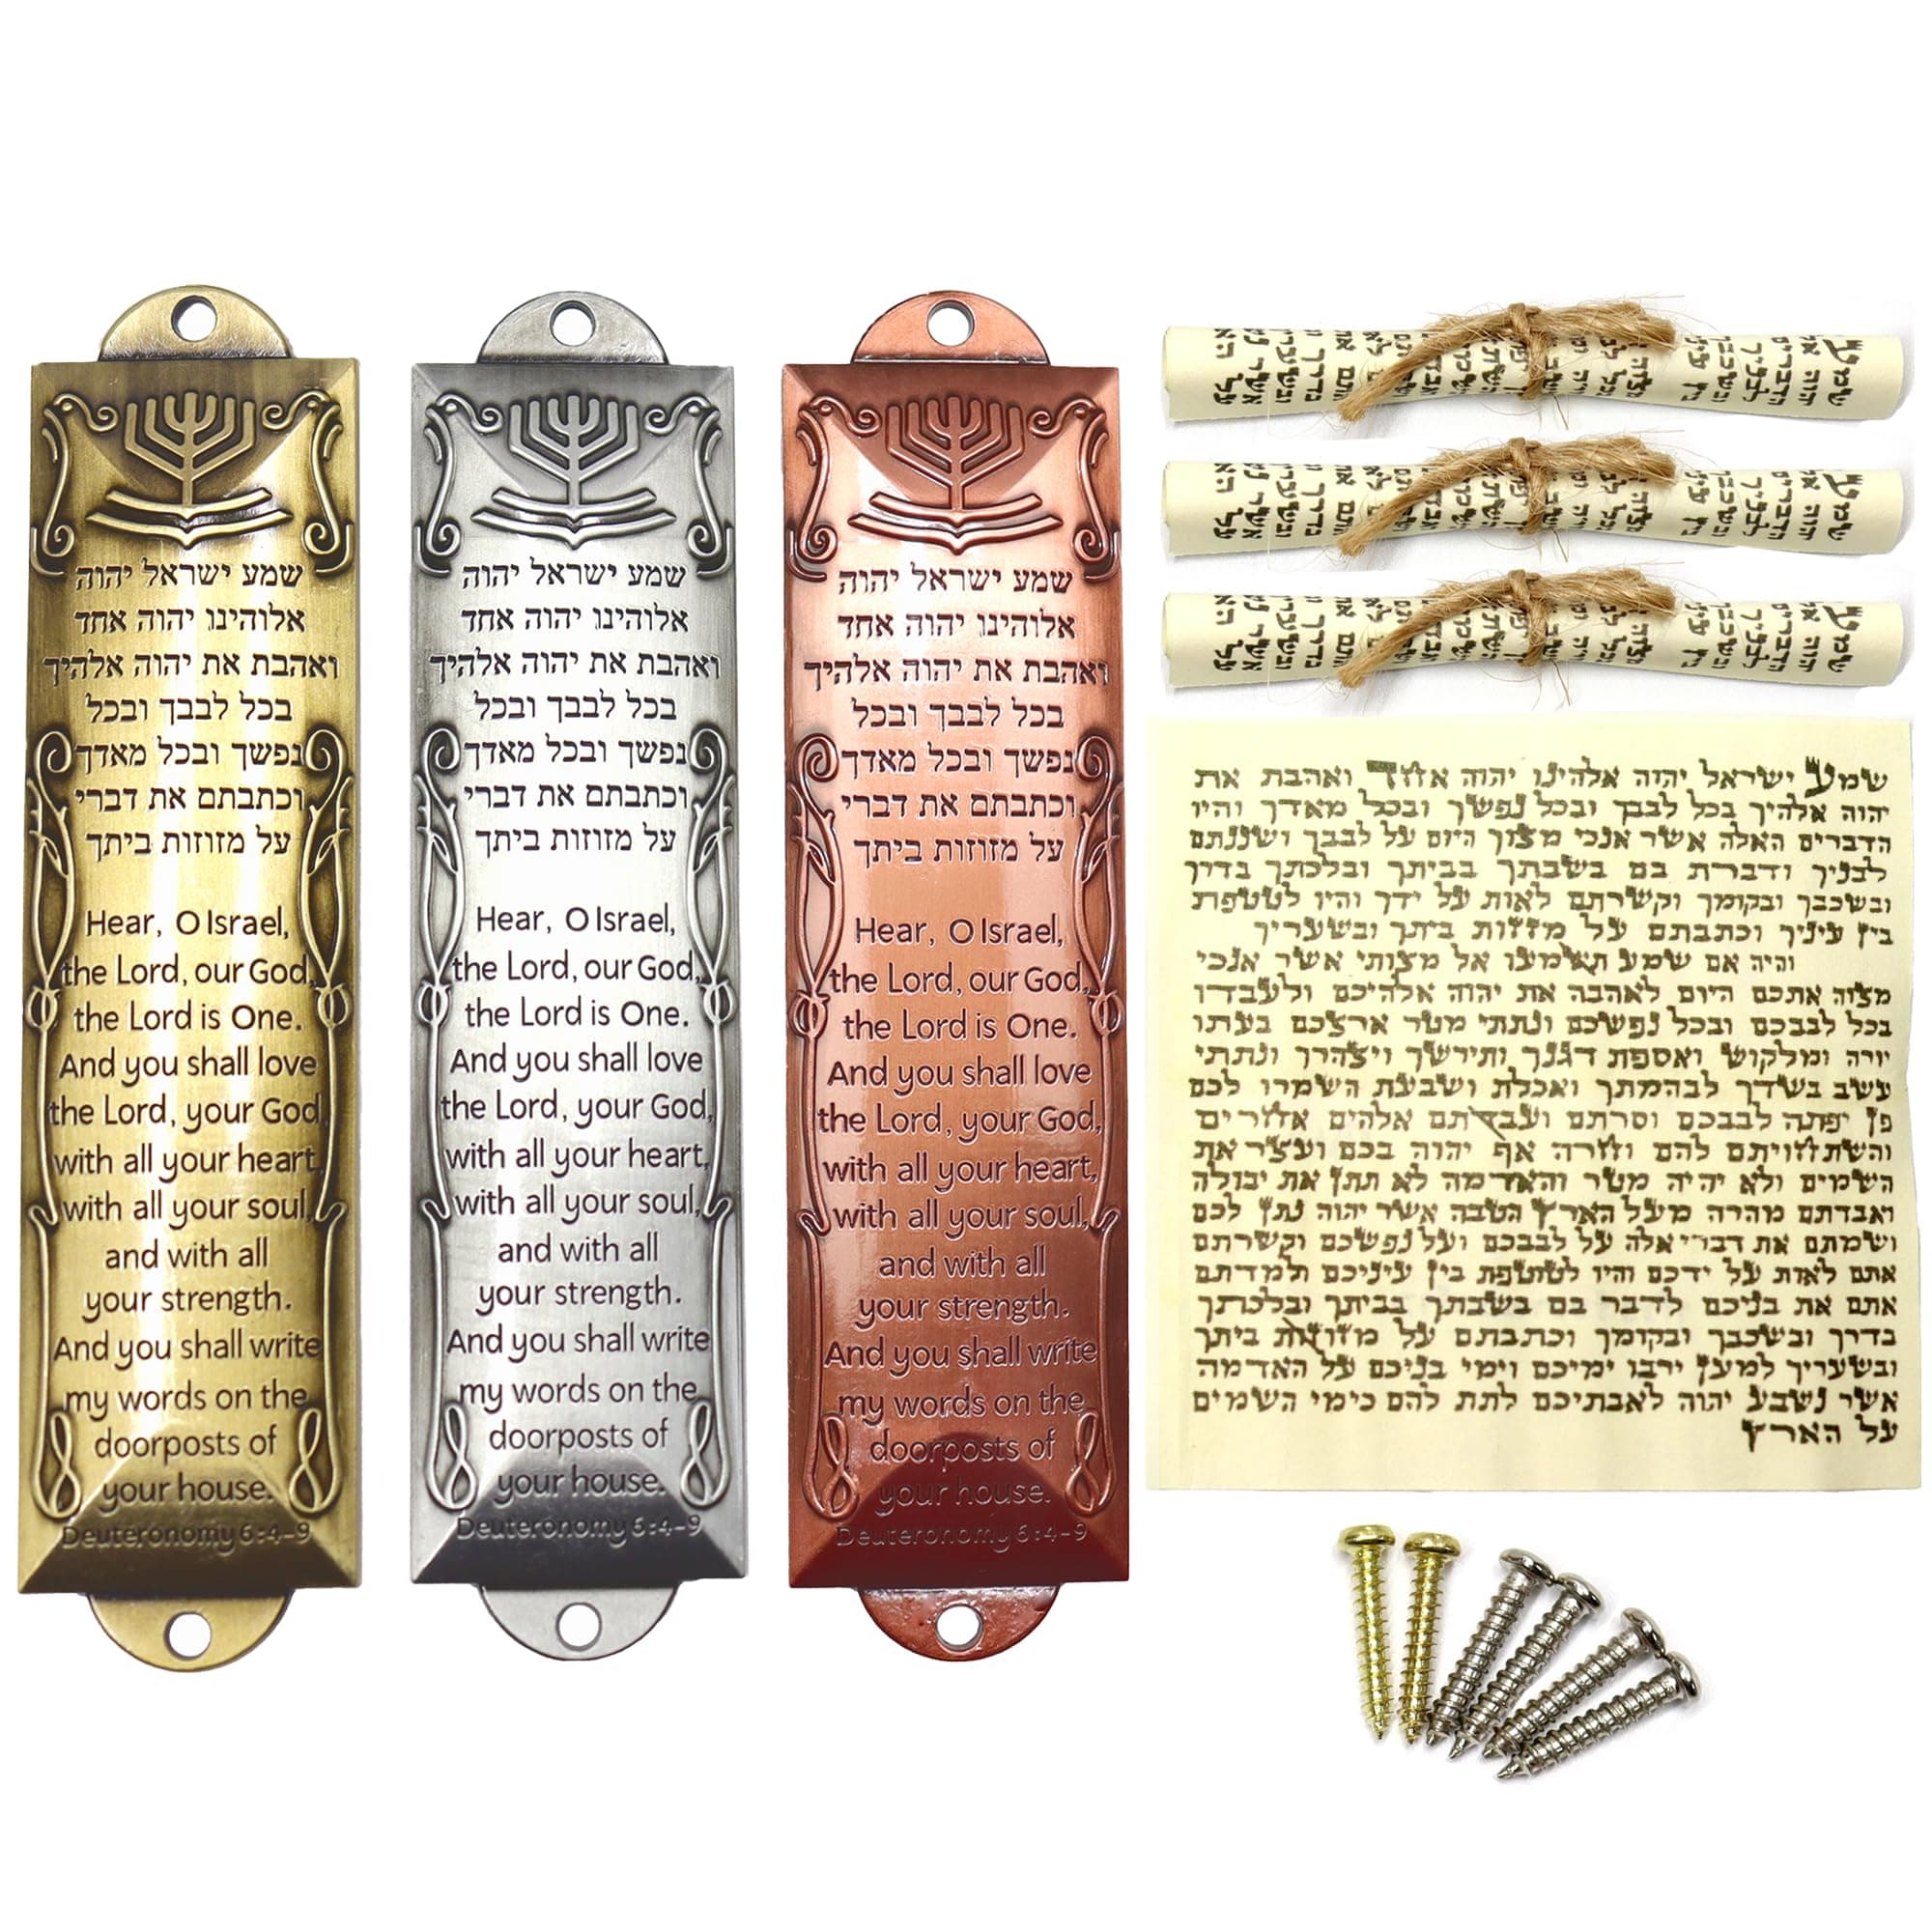 שמע ישראל יהוה
אלוהינו יהוה אחד
ואהבת את יהוה אלהיך
בכל לבבך ובכל
נפשך ובכל מאדך
וכתבתם את דברי
על מזוזות ביתך
Hear, O Israel,
the Lord, our God,
the Lord is One.
And you shall love
the Lord, your God,
with all your heart,
with all your soul,
and with all
your strength.
And you shall write
my words on the
doorposts of
your house.
Deuteronomy 6:4-9
שמע ישראל יהוה
אלוהינו יהוה אחד
ואהבת את יהוה אלהיך
בכל לבבך ובכל
נפשך ובכל מאדך
וכתבתם את דברי
על מזוזות ביתך
Hear, O Israel,
the Lord, our God,
the Lord is One.
And you shall love
the Lord, your God,
with all your heart,
with all your soul,
and with all
your strength.
And you shall write
my words on the
doorposts of
your house.
Deuteronomy 6:4-9
שמע ישראל יהוה
אלוהינו יהוה אחד
ואהבת את יהוה אלהיך
בכל לבבך ובכל
נפשך ובכל מאדך
וכתבתם את דברי
על מזוזות ביתך
Hear, O Israel,
the Lord, our God,
the Lord is One.
And you shall love
the Lord, your God,
with all your heart,
with all your soul,
and with all
your strength.
And you shall write
my words on the
doorposts of
your house.
Deuteronomy 6:4-9
שמע ישראל יהוה אלהינו יהוה אחד ואהבת את
יהוה אלהיך בכל לבבך ובכל נפשך ובכל מאדך והיו
הדברים האלה אשר אנכי מצוך היום על לבבך ושננתם
לבניך ודברת בם בשבתך בביתך ובלכתך בדרך
ובשכבך ובקומך וקשרתם לאות על ידך והיו לטטפת
בין עיניך וכתבתם על מזזות ביתך ובשעריך
והיה אם שמע תשמעו אל מצותי אשר אנכי
מצוה אתכם היום לאהבה את יהוה אלהיכם ולעבדו
בכל לבבכם ובכל נפשכם ונתתי מטר ארצכם בעתו
יורה ומלקוש ואספת דגנך ותירשך ויצהרך ונתתי
עשב בשדך לבהמתך ואכלת ושבעת השמרו לכם
פן יפתה לבבכם וסרתם ועבדתם אלהים אחרים
והשתחויתם להם וחרה אף יהוה בכם ועצר את
השמים ולא יהיה מטר והאדמה לא תתן את יבולה
ואבדתם מהרה מעל הארץ הטבה אשר יהוה נתן לכם
ושמתם את דברי אלה על לבבכם ועל נפשכם וקשרתם
אתם לאות על ידכם והיו לטוטפת בין עיניכם ולמדתם
אתם את בניכם לדבר בם בשבתך בביתך ובלכתך
בדרך ובשכבך ובקומך וכתבתם על מזוזות ביתך
ובשעריך למען ירבו ימיכם וימי בניכם על האדמה
אשר נשבע יהוה לאבתיכם לתת להם כימי השמים
על הארץ